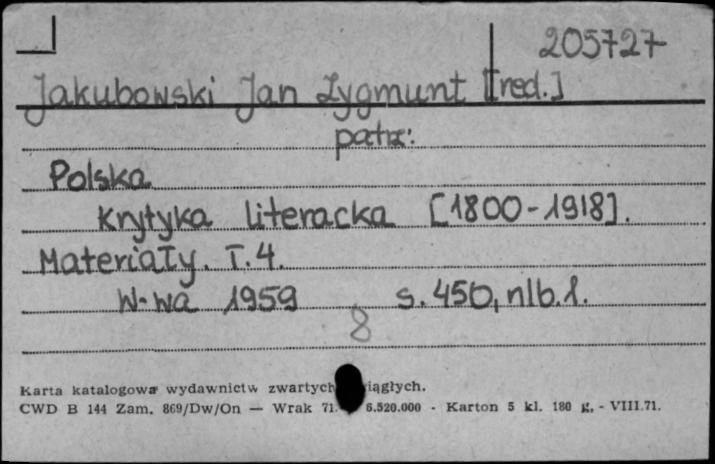 205727
Jakubowski Jan Zygmunt [red.]
patrz:
Polska
Krytyka literacka [1800-1918].
Materiały. T.4.
W-wa 1959 s. 450, nlb. 1.
8
Karta katalogowa wydawnictw zwartych iągłych.
CWD B 144 Zam. 869/Dw/On — Wrak 71. 6.520.000 - Karton 5 kl. 180 g. - VIII.71.